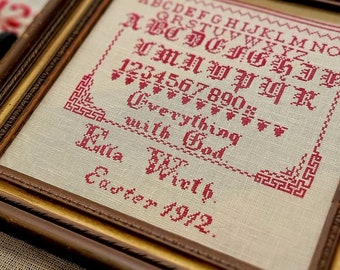 ABCDEFGHIJKLMNO
QRSTUVWXYZ
ABCDEFGHI
1234567890
Everything
with God
Ella Wirth.
Easter 1912.